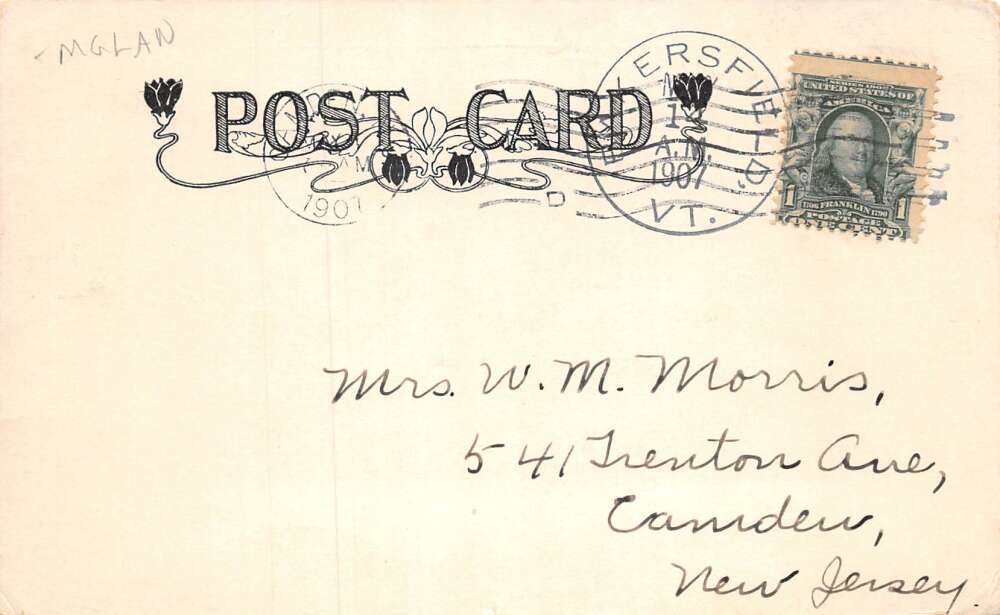 -MGLAN
POST CARD
VT.
A.M.
1907
AM
1907
D
UNITED STATES OF
AMERICA
1706 FRANKLIN 1790
1 POSTAGE 1
ONE CENT
Mrs. W. M. Morris,
541 Trenton Ave,
Camden,
New Jersey.